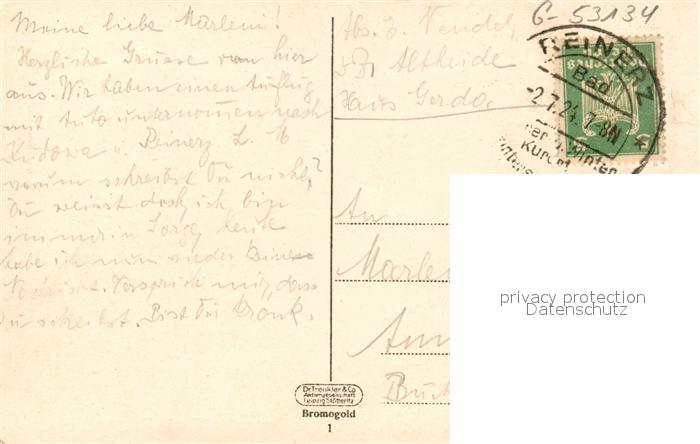 Meine liebe Marleni!
Herzliche Grüsse von hier
aus. Wir haben einen Ausflug
mit Auto unternommen nach
Kudowa u. Reinerz. L. M.
warum schreibst Du nicht?
Du weisst doch, ich bin
immer in Sorge, heute
habe ich nun wieder keine
Nachricht. Versprich mir, dass
Du schreibst. Bist Du krank.
G-53134
Abs. z. Wendel
Altheide
Haus Gerda
REINERZ
Bad
-2.7.24.7-8N
Winter
Kurort
An
Marlen
Dr Trenkler & Co
Aktiengesellschaft
Leipzig-Stötteritz
Bromogold
1
privacy protection
Datenschutz